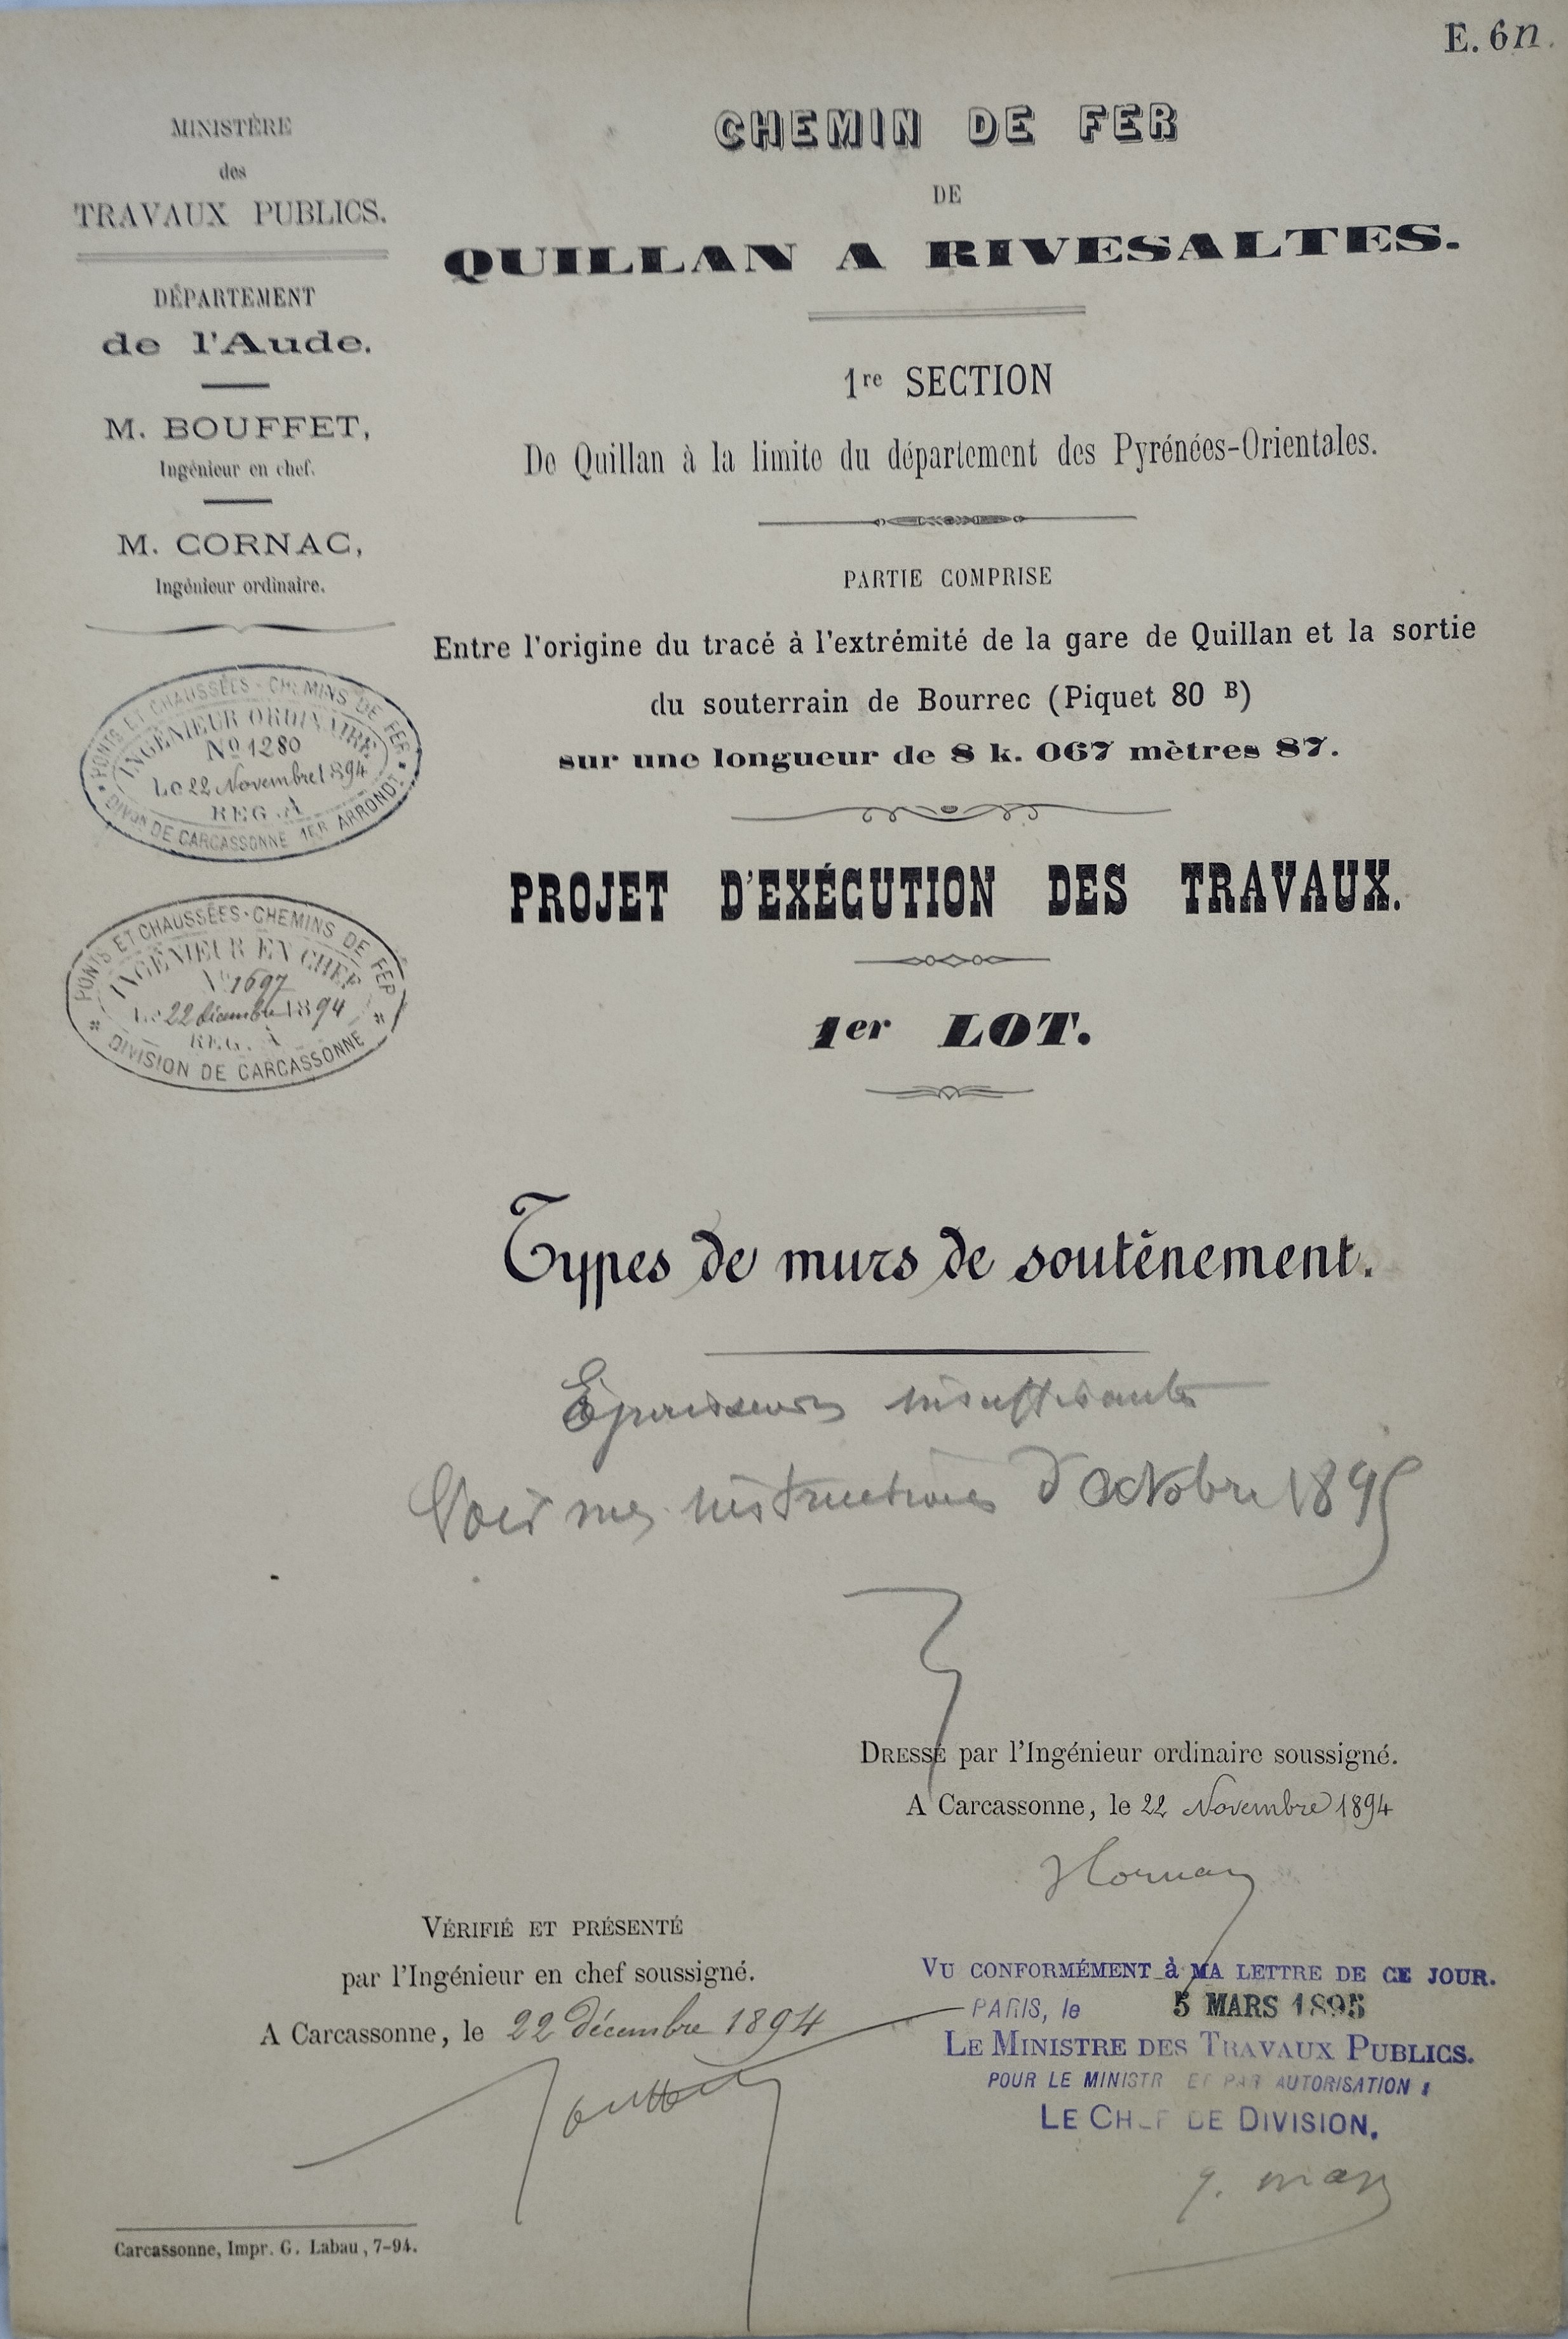 E. 6n.
MINISTÈRE
des
TRAVAUX PUBLICS.
DÉPARTEMENT
de l'Aude.
M. BOUFFET,
Ingénieur en chef.
M. CORNAC,
Ingénieur ordinaire.
PONTS ET CHAUSSÉES - CHEMINS DE FER
INGÉNIEUR ORDINAIRE
No 1280
Le 22 Novembre 1894
REG. A
DIVON DE CARCASSONNE 1ER ARRONDT
PONTS ET CHAUSSÉES - CHEMINS DE FER
INGÉNIEUR EN CHEF
No 1697
Le 22 décembre 1894
REG. A
DIVISION DE CARCASSONNE
CHEMIN DE FER
DE
QUILLAN A RIVESALTES.
1re SECTION
De Quillan à la limite du département des Pyrénées-Orientales.
PARTIE COMPRISE
Entre l'origine du tracé à l'extrémité de la gare de Quillan et la sortie
du souterrain de Bourrec (Piquet 80 B)
sur une longueur de 8 k. 067 mètres 87.
PROJET D'EXÉCUTION DES TRAVAUX.
1er LOT.
Types de murs de soutènement.
Epaisseurs insuffisantes
Voir mes instructions d'Octobre 1895
DRESSÉ par l'Ingénieur ordinaire soussigné.
A Carcassonne, le 22 Novembre 1894
VÉRIFIÉ ET PRÉSENTÉ
par l'Ingénieur en chef soussigné.
A Carcassonne, le 22 décembre 1894
Bouffet
VU CONFORMÉMENT à MA LETTRE DE CE JOUR.
PARIS, le 5 MARS 1895
LE MINISTRE DES TRAVAUX PUBLICS.
POUR LE MINISTR ET PAR AUTORISATION :
LE CHEF DE DIVISION.
Carcassonne, Impr. G. Labau, 7-94.